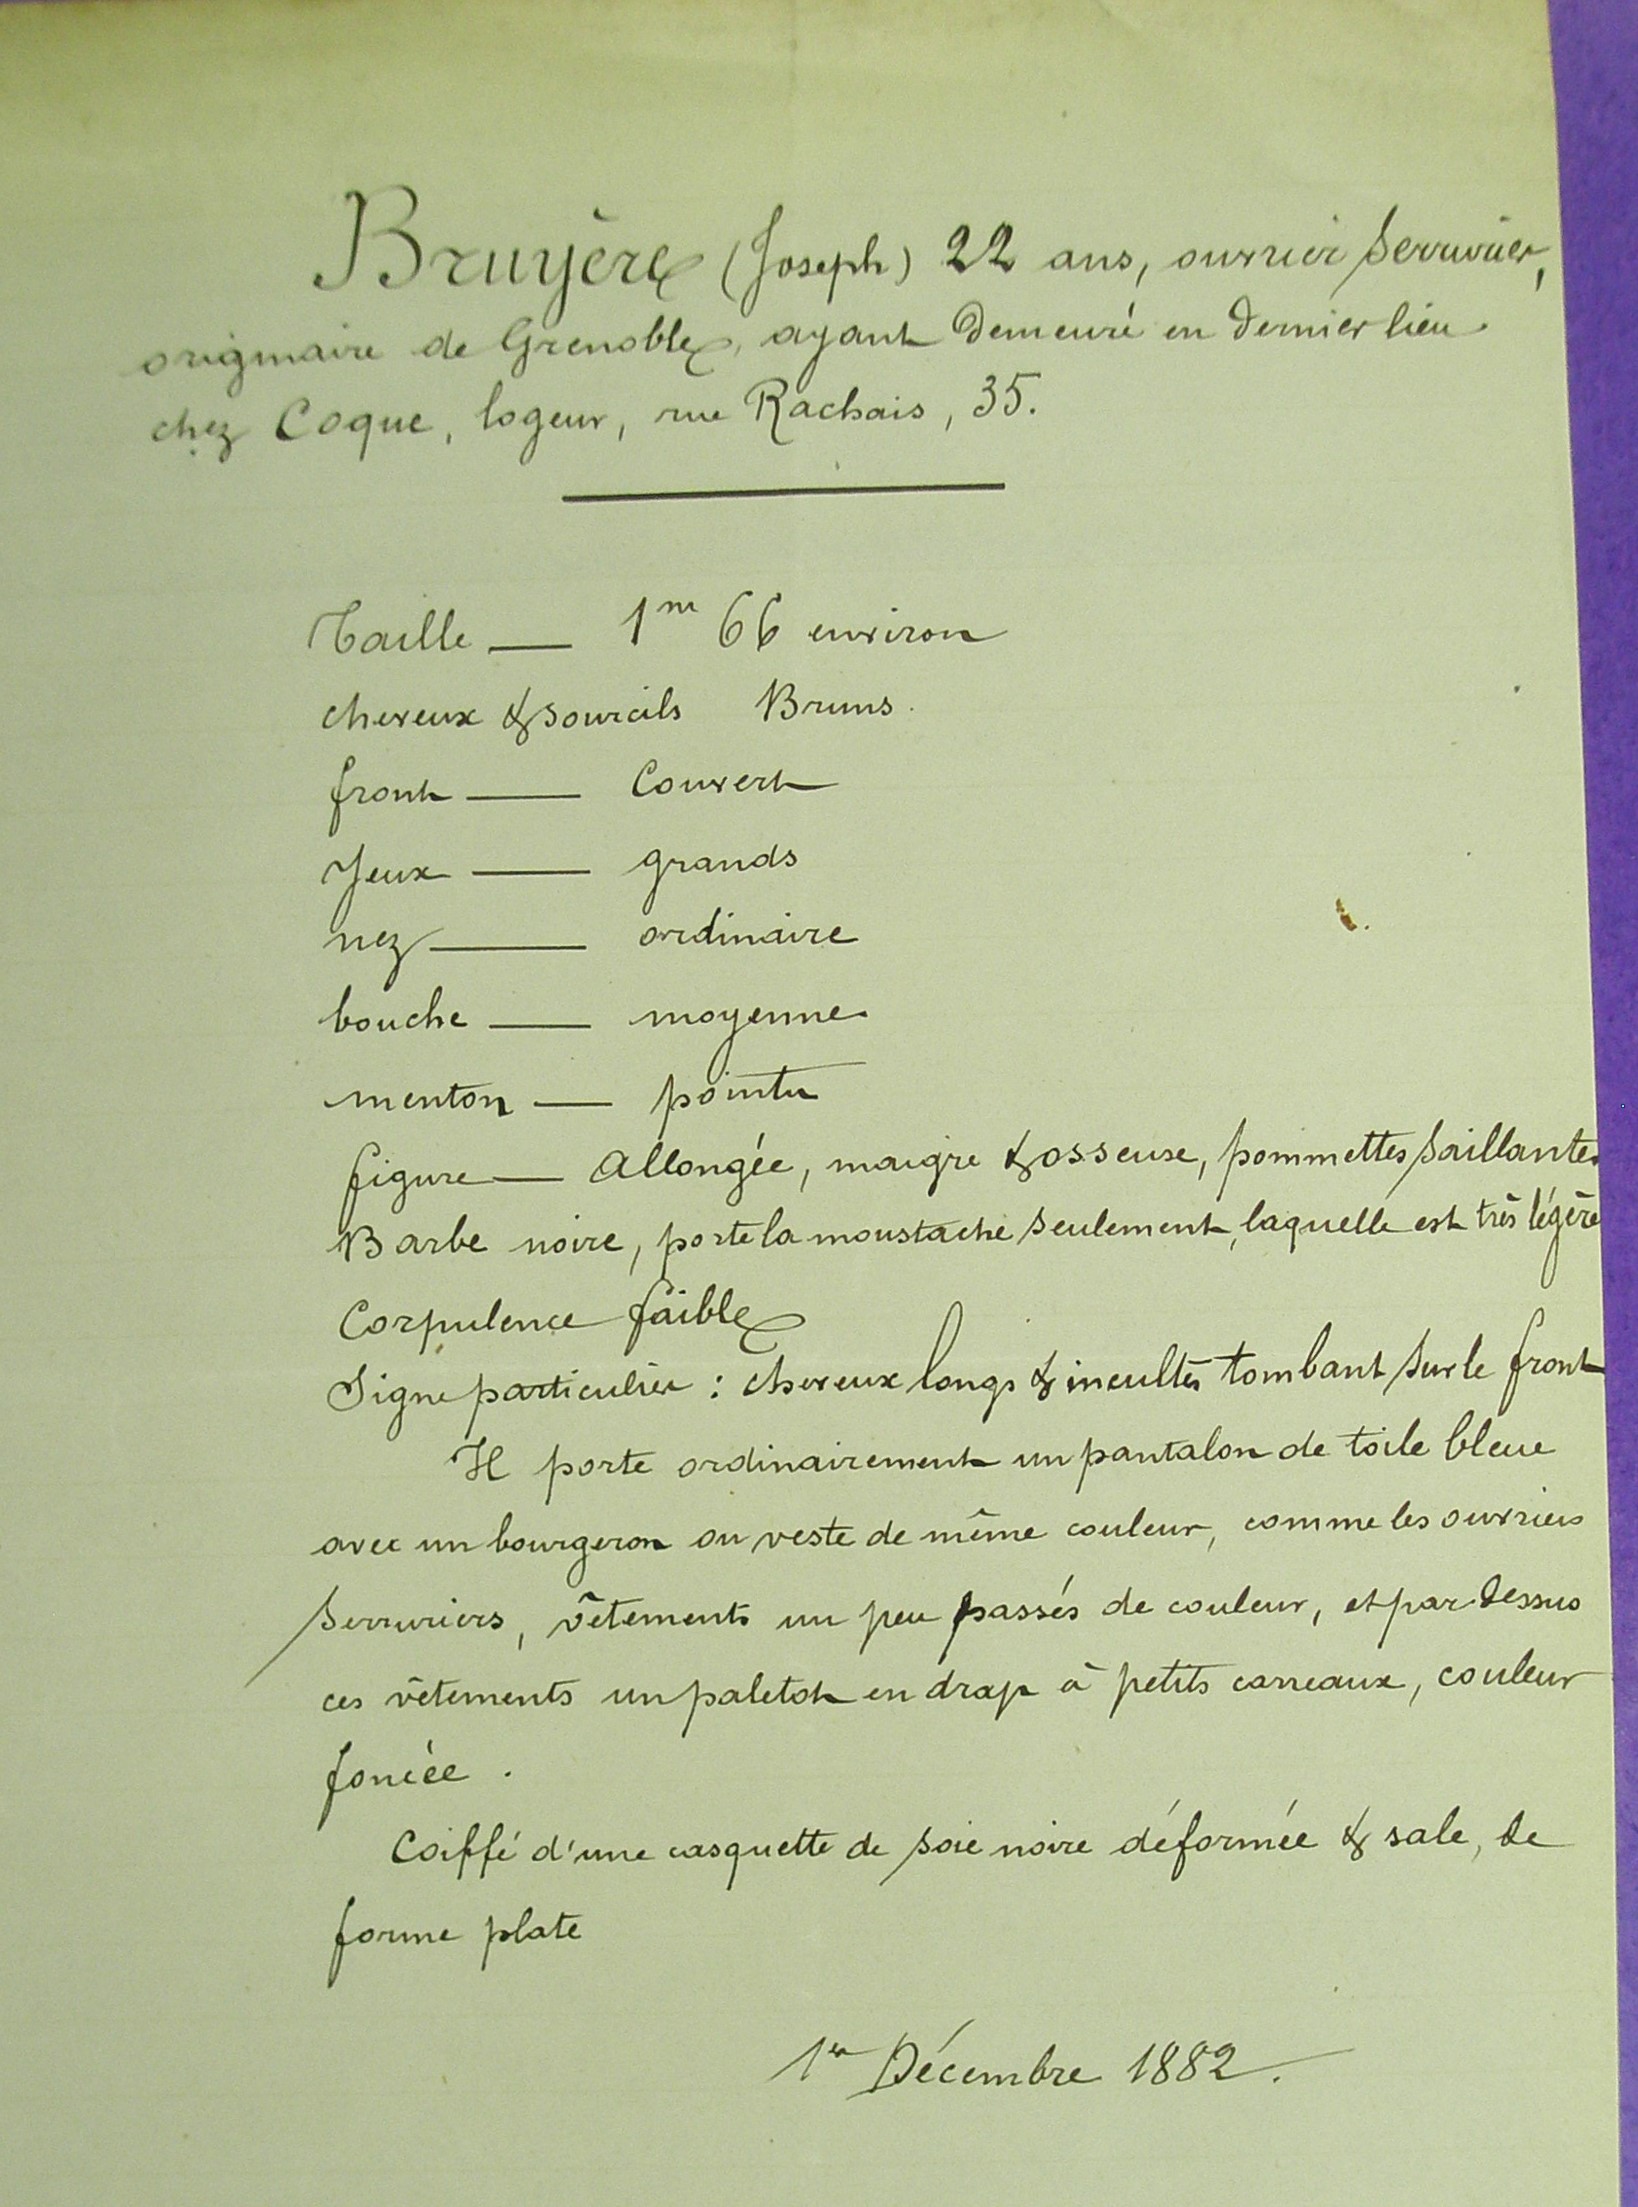 Bruyère (Joseph) 22 ans, ouvrier serrurier,
originaire de Grenoble, ayant demeuré en dernier lieu
chez Coque, logeur, rue Rachais, 35.
Taille — 1m 66 environ
cheveux & sourcils Bruns.
front — Couvert
Yeux — grands
nez — ordinaire
bouche — moyenne
menton — pointu
figure — Allongée, maigre & osseuse, pommettes saillantes
Barbe noire, porte la moustache seulement, laquelle est très légère
Corpulence faible
Signe particulier : cheveux longs & incultes tombant sur le front
Il porte ordinairement un pantalon de toile bleue
avec un bourgeron ou veste de même couleur, comme les ouvriers
serruriers, vêtements un peu passés de couleur, et par dessus
ces vêtements un paletot en drap à petits carreaux, couleur
foncée.
Coiffé d'une casquette de soie noire déformée & sale, de
forme plate
1er Décembre 1882.